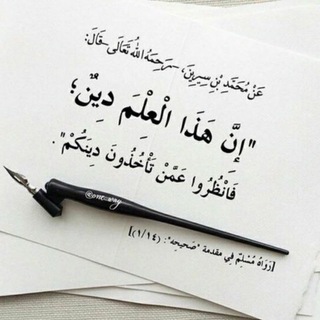 عَنْ مُحَمَّدِ بْنِ سِيرِينَ، رَحِمَهُ اللهُ تَعَالَى قَالَ:
"إِنَّ هَذَا الْعِلْمَ دِينٌ؛
فَانْظُرُوا عَمَّنْ تَأْخُذُونَ دِينَكُمْ".
[رَوَاهُ مُسْلِمٌ فِي مقدمة "صَحِيحِهِ": (١/١٤)]